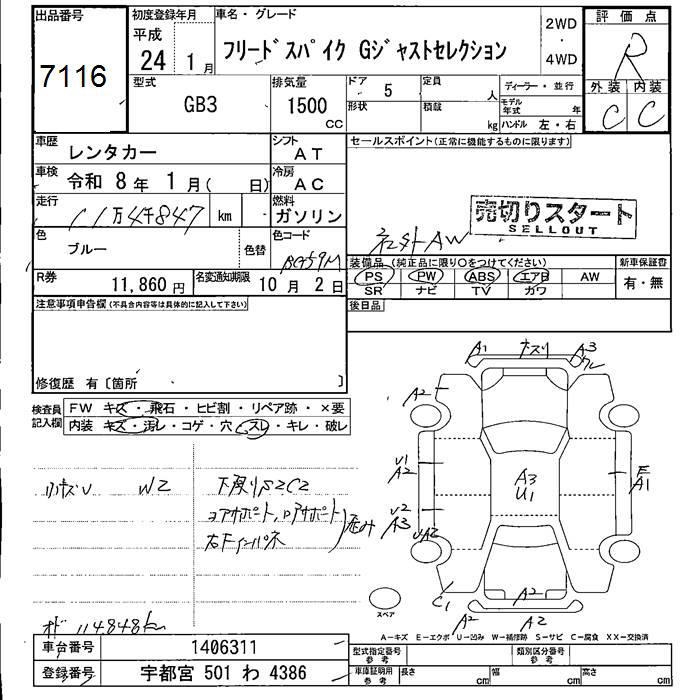 出品番号
7116
初度登録年月
平成
24 1月
車名・グレード
フリードスパイク Gジャストセレクション
2WD
・
4WD
評価点
R
外装 内装
C C
型式
GB3
排気量
1500
CC
ドア 5
形状
定員 人
積載 kg
ディーラー・並行
モデル年式 年
ハンドル 左・右
車歴
レンタカー
シフト
AT
セールスポイント(正常に機能するものに限ります)
車検
令和 8年 1月( 日)
冷房
AC
走行
11万4千847 km
燃料
ガソリン
売切りスタート
SELLOUT
社外AW
色
ブルー
色替
色コード
BG59M
装備品 (純正品に限り○をつけてください)
新車保証書
PS PW ABS エアB AW
SR ナビ TV カワ
有・無
R券
11,860円
名変通知期限
10月 2日
後日品
注意事項申告欄(不具合内容等は具体的に記入して下さい)
修復歴 有〔箇所 〕
検査員
記入欄
FW キズ・飛石・ヒビ割・リペア跡・×要
内装 キズ・汚レ・コゲ・穴・スレ・キレ・破レ
小キズU W2
下廻りS2C2
コアサポート、ロアサポート
右Fインパネ
歪み
オド 114848km
A1 キズリ A3
ワレ
A2
U1
A2
U2
A3
UA2
A3
U1
E
A1
C1
A2
A1 A2
スペア
A―キズ E―エクボ U―凹み W―補修跡 S―サビ C―腐食 XX―交換済
車台番号
1406311
登録番号
宇都宮 501 わ 4386
型式指定番号
参考
類別区分番号
参考
車庫証明用
参考
長さ cm
幅 cm
高さ cm